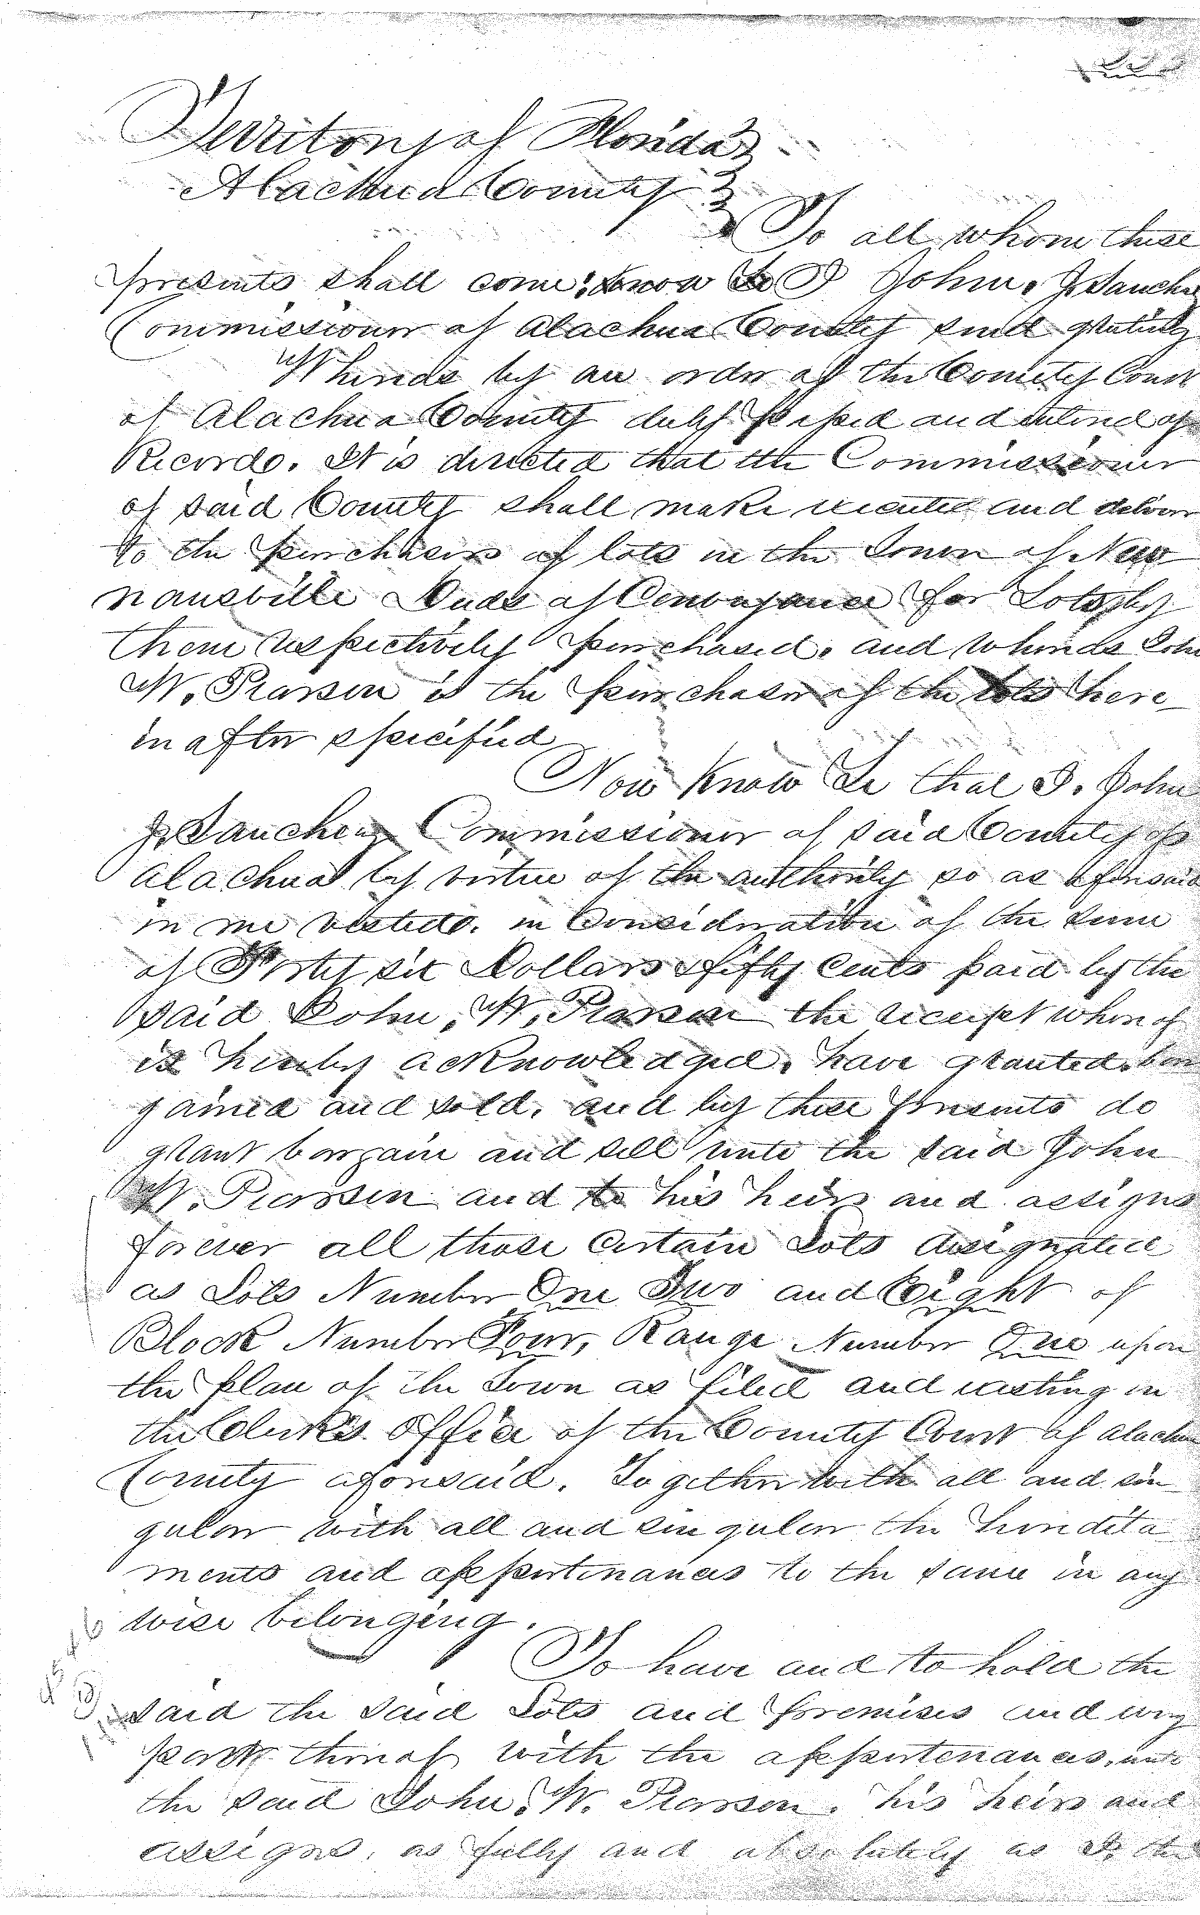 Territory of Florida
Alachua County
To all whom these
presents shall come, Know Ye I John. J. Sanchez
Commissioner of Alachua County send greeting
Whereas by an order of the County Court
of Alachua County duly passed and entered of
Record. It is directed that the Commissioner
of said County shall make execute and deliver
to the purchasers of lots in the Town of New
nansville Deeds of Conveyance for Lots by
them respectively purchased. and whereas John
W. Pearson is the purchaser of the lots here-
in after specified
Now Know Ye that I. John
J. Sanchez Commissioner of said County of
Alachua by virtue of the authority so as aforesaid
in me vested. in Consideration of the sum
of Forty six Dollars & fifty Cents paid by the
said John. W. Pearson the receipt whereof
is hereby acknowledged. have granted. bar
gained and sold. and by these presents do
grant bargain and sell unto the said John
W. Pearson and to his heirs and assigns
forever all those certain Lots designated
as Lots Number One Two and Eight of
Block Number Four, Range Number One upon
the plan of the Town as filed and existing in
the Clerk's Office of the County Court of Alachua
County aforesaid. Together with all and sin
gular with all and singular the heredita
ments and appertenances to the same in any
wise belonging.
To have and to hold the
said the said Lots and premises and every
part thereof with the appertenances. unto
the said John. W. Pearson. his heirs and
assigns. as fully and absolutely as I. the